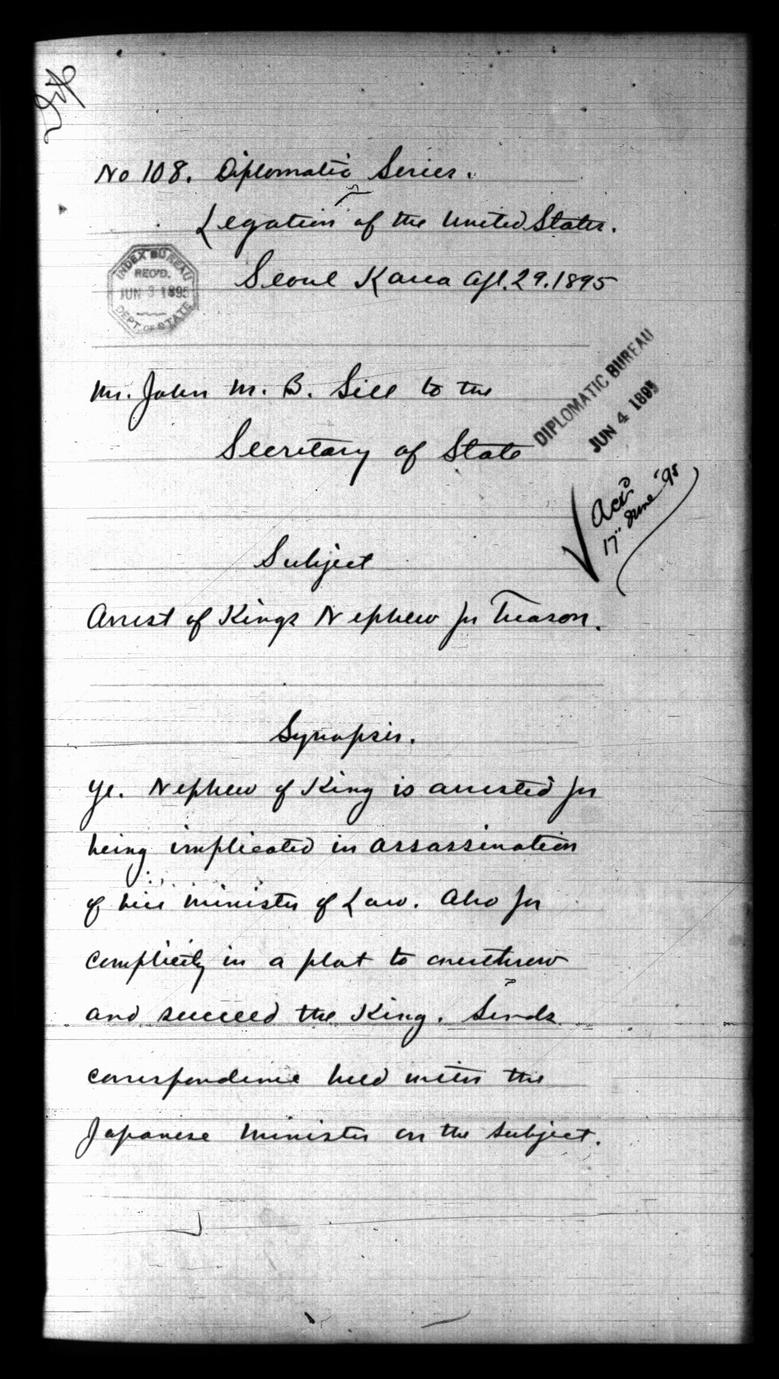 No 108. Diplomatic Series.
Legation of the United States.
Seoul Korea Apl. 29. 1895
INDEX BUREAU
REC'D.
JUN 3 1895
DEPT. OF STATE
Mr. John M. B. Sill to the
Secretary of State
DIPLOMATIC BUREAU
JUN 4 1895
17" June '95
Subject
Arrest of Kings Nephew for Treason.
Synopsis.
Ye. Nephew of King is arrested for
being implicated in assassination
of vice minister of Law. Also for
complicity in a plot to overthrow
and succeed the King. Sends
correspondence held with the
Japanese Minister on the subject.